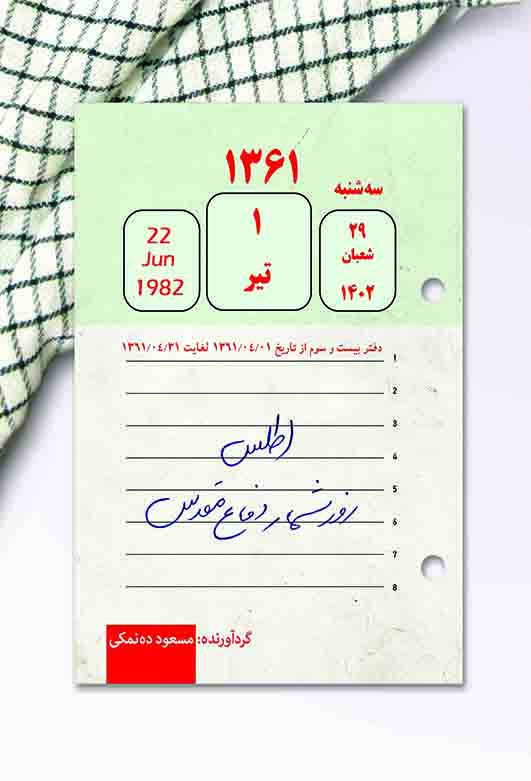 ۱۳۶۱
سه‌شنبه
۲۹
شعبان
۱۴۰۲
۱
تیر
22
Jun
1982
دفتر بیست و سوم از تاریخ ۱۳۶۱/۰۴/۰۱ لغایت ۱۳۶۱/۰۴/۳۱
1
2
3
اطلس
4
5
روزشمار دفاع مقدس
6
7
8
گردآورنده: مسعود ده‌نمکی